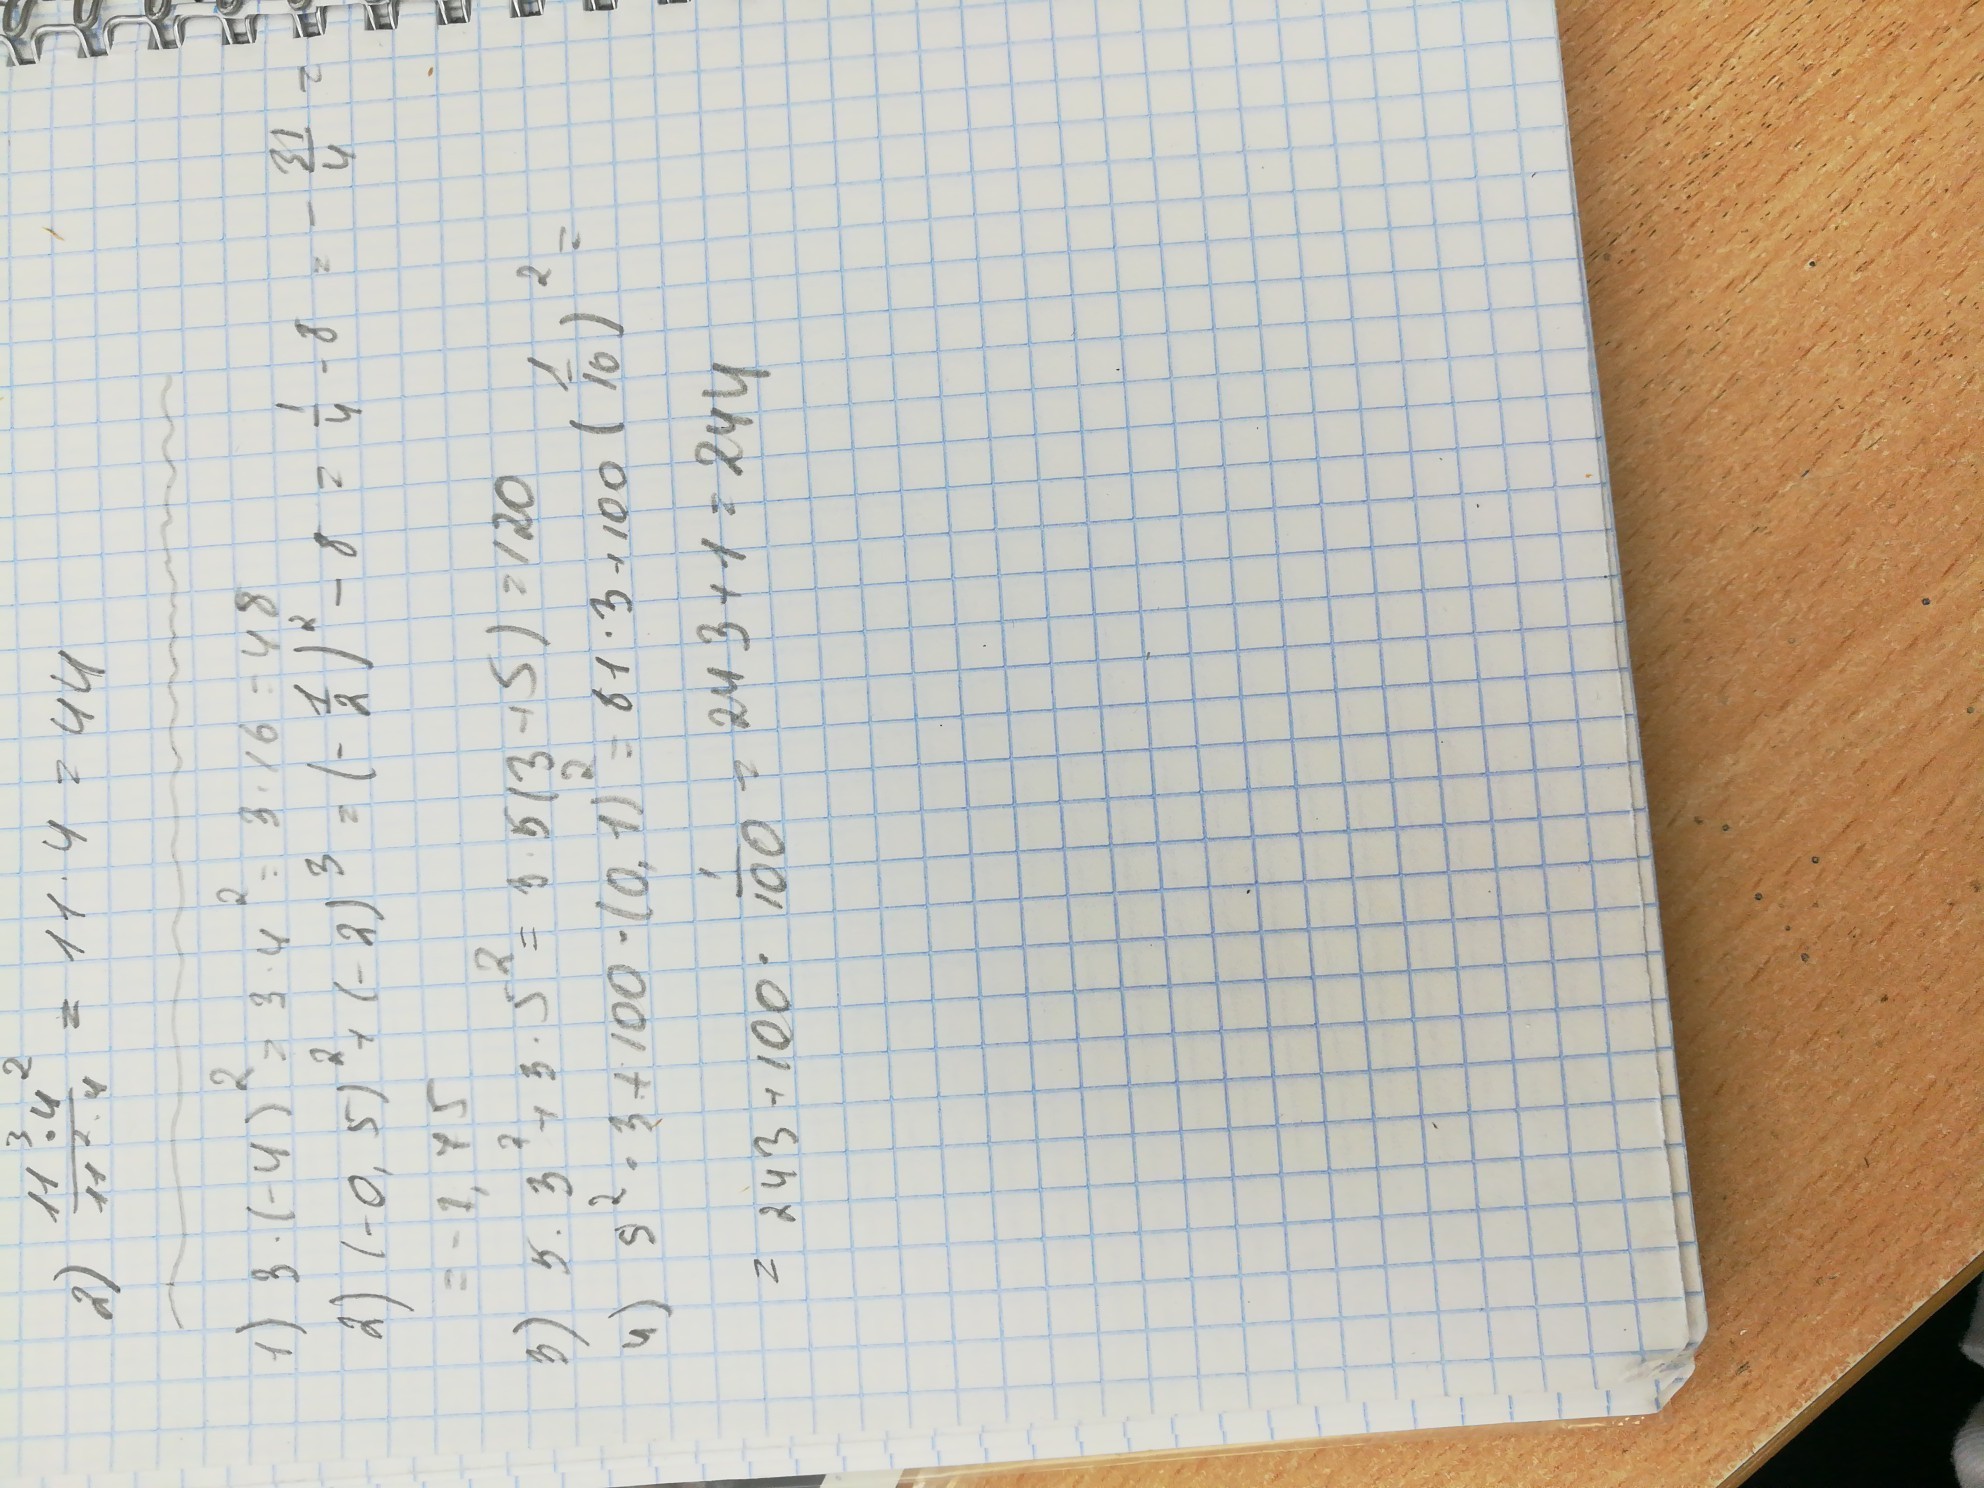 2) \frac{11^3 \cdot 4^2}{11^2 \cdot 4} = 11 · 4 = 44
1) 3 · (-4)^2 = 3 · 4^2 = 3 · 16 = 48
2) (-0,5)^2 + (-2)^3 = (-\frac{1}{2})^2 - 8 = \frac{1}{4} - 8 = -\frac{31}{4} =
= -7,75
3) 5 · 3^2 + 3 · 5^2 = 3 · 5(3+5) = 120
4) 9^2 · 3 + 100 · (0,1)^2 = 81 · 3 + 100 (\frac{1}{10})^2 =
= 243 + 100 · \frac{1}{100} = 243 + 1 = 244